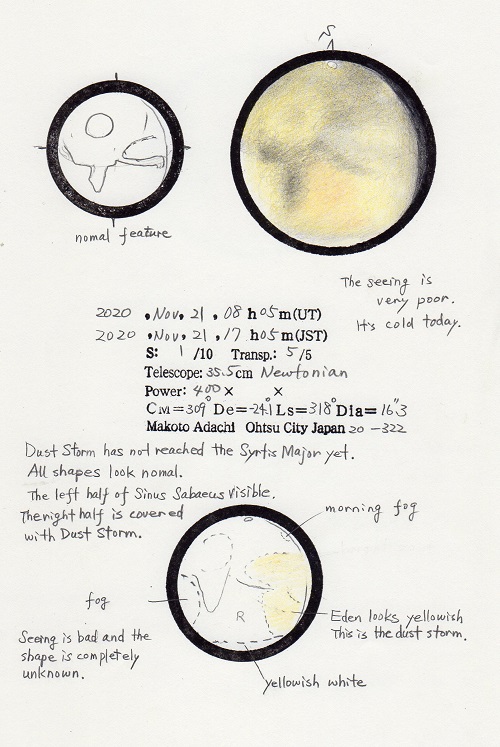 S
nomal feature
The seeing is
very poor.
It's cold today.
2020 . Nov. 21 . 08 h 05 m (UT)
2020 . Nov. 21 . 17 h 05 m (JST)
S: 1 /10 Transp.: 5 /5
Telescope: 35.5 cm Newtonian
Power: 400 × ×
CM = 309° De = -24.1° Ls = 318° Dia = 16"3
Makoto Adachi Ohtsu City Japan 20 - 322
Dust Storm has not reached the Syrtis Major yet.
All shapes look nomal.
The left half of Sinus Sabaeus visible.
The right half is covered
with Dust Storm.
morning fog
fog
R
Eden looks yellowish
This is the dust storm.
Seeing is bad and the
shape is completely
unknown.
yellowish white